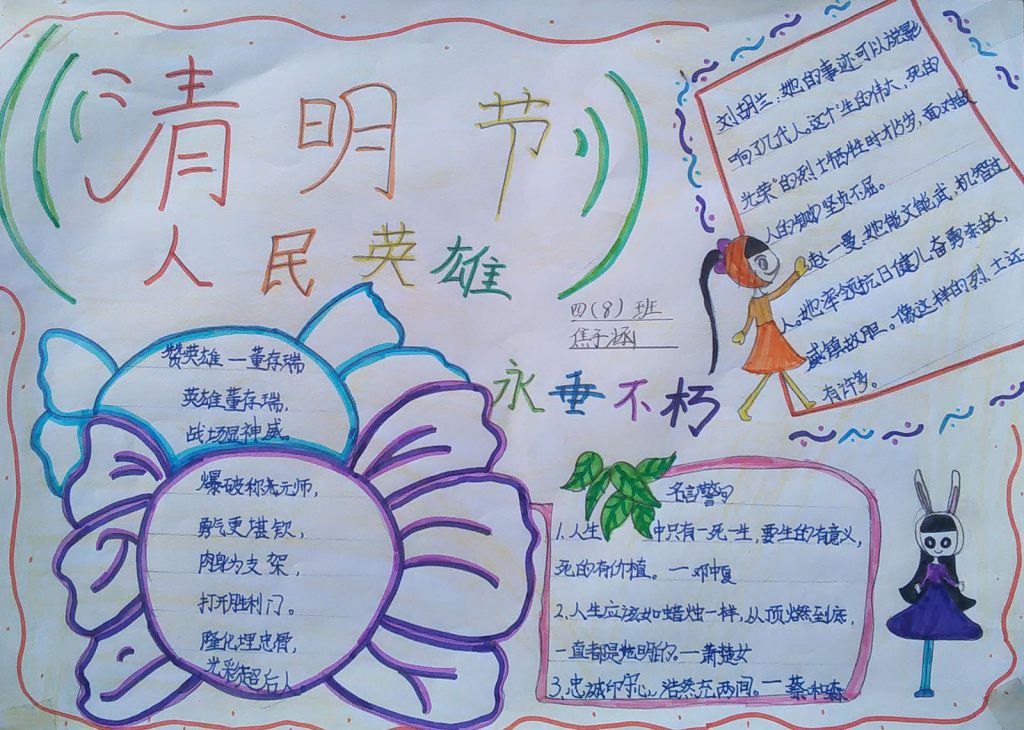 清明节
人民英雄
永垂不朽
四(8)班
焦子涵
刘胡兰:她的事迹可以说影
响了几代人。这个“生的伟大、死的
光荣”的烈士牺牲时才15岁,面对敌
人的铡刀坚贞不屈。
赵一曼:她能文能武,机智过
人。她率领抗日健儿奋勇杀敌,
威镇敌胆。像这样的烈士还
有许多。
赞英雄—董存瑞
英雄董存瑞,
战场显神威。
爆破称元师,
勇气更堪钦,
肉身为支架,
打开胜利门。
隆化埋忠骨,
光彩超后人
名言警句
1.人生中只有一死一生,要生的有意义,
死的有价值。—邓中夏
2.人生应该如蜡烛一样,从顶燃到底,
一直都是光明的。—萧楚女
3.忠诚印寸心,浩然充两间。—蔡和森